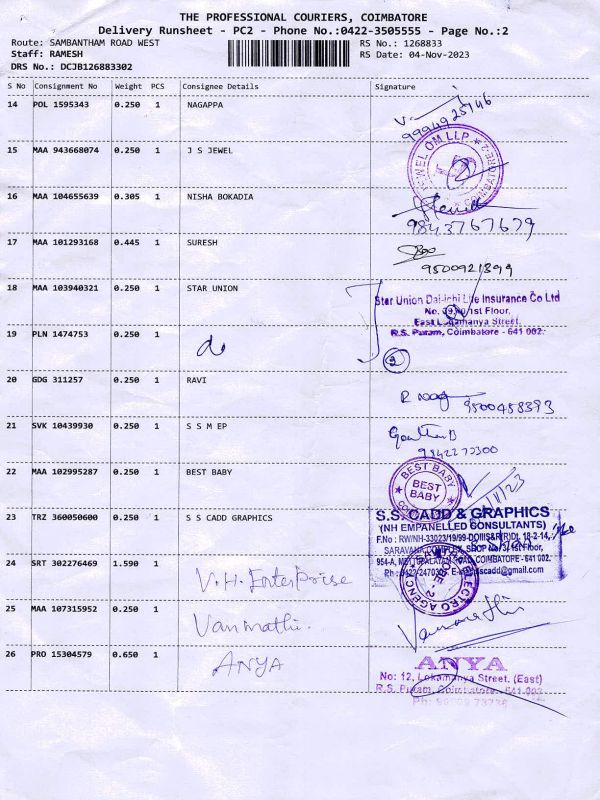 THE PROFESSIONAL COURIERS, COIMBATORE
Delivery Runsheet - PC2 - Phone No.:0422-3505555 - Page No.:2
Route: SAMBANTHAM ROAD WEST RS No.: 1268833
Staff: RAMESH RS Date: 04-Nov-2023
DRS No.: DCJB126883302
S No Consignment No Weight PCS Consignee Details Signature
14 POL 1595343 0.250 1 NAGAPPA
9994925746
15 MAA 943668074 0.250 1 J S JEWEL
JEWEL OM LLP
COIMBATORE-2
16 MAA 104655639 0.305 1 NISHA BOKADIA
9843767679
17 MAA 101293168 0.445 1 SURESH
9500921899
18 MAA 103940321 0.250 1 STAR UNION
Star Union Dai-ichi Life Insurance Co Ltd
1st Floor,
East Lokamanya Street,
R.S. Puram, Coimbatore - 641 002.
19 PLN 1474753 0.250 1
2
20 GDG 311257 0.250 1 RAVI
9500458393
21 SVK 10439930 0.250 1 S S M EP
22 MAA 102995287 0.250 1 BEST BABY
BEST BABY
BEST
BABY
23 TRZ 360050600 0.250 1 S S CADD GRAPHICS
S.S. CADD & GRAPHICS
(NH EMPANELLED CONSULTANTS)
SHOP No:3, 1st Floor,
COIMBATORE - 641 002.
24 SRT 302276469 1.590 1 V.H. Enterprise
ELECTRO AGENCY
25 MAA 107315952 0.250 1 Vanmathi.
26 PRO 15304579 0.650 1 ANYA
ANYA
No: 12, Lokamanya Street, (East)
R.S. Puram, Coimbatore - 641 002